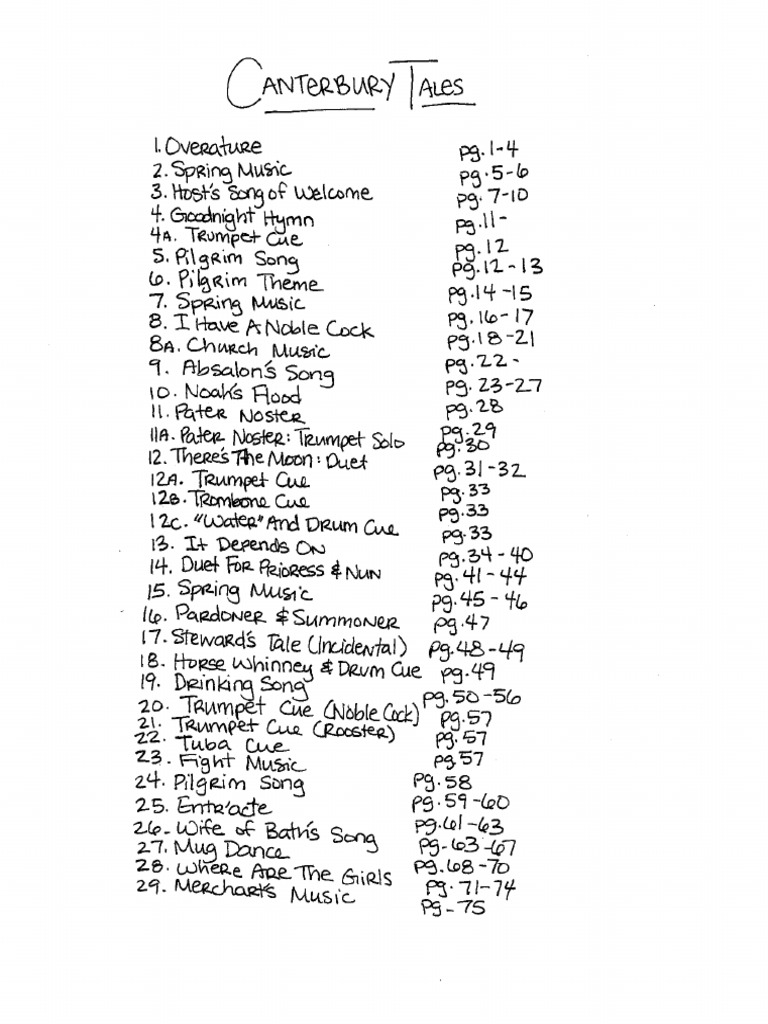 CANTERBURY TALES
1. Overature pg. 1-4
2. Spring Music pg. 5-6
3. Host's Song of Welcome pg. 7-10
4. Goodnight Hymn pg. 11-
4A. Trumpet Cue pg. 12
5. Pilgrim Song pg. 12-13
6. Pilgrim Theme pg. 14-15
7. Spring Music pg. 16-17
8. I Have A Noble Cock pg. 18-21
8A. Church Music pg. 22-
9. Absalon's Song pg. 23-27
10. Noah's Flood pg. 28
11. Pater Noster pg. 29
11A. Pater Noster: Trumpet Solo pg. 30
12. There's The Moon: Duet pg. 31-32
12A. Trumpet Cue pg. 33
12B. Trombone Cue pg. 33
12C. "Water" And Drum Cue pg. 33
13. It Depends On pg. 34-40
14. Duet For Prioress & Nun pg. 41-44
15. Spring Music pg. 45-46
16. Pardoner & Summoner pg. 47
17. Steward's Tale (Incidental) pg. 48-49
18. Horse Whinney & Drum Cue pg. 49
19. Drinking Song pg. 50-56
20. Trumpet Cue (Noble Cock) pg. 57
21. Trumpet Cue (Rooster) pg. 57
22. Tuba Cue pg 57
23. Fight Music pg. 58
24. Pilgrim Song pg. 59-60
25. Entr'acte pg. 61-63
26- Wife of Bath's Song pg- 63-67
27. Mug Dance pg. 68-70
28. Where Are The Girls pg. 71-74
29. Merchart's Music pg- 75